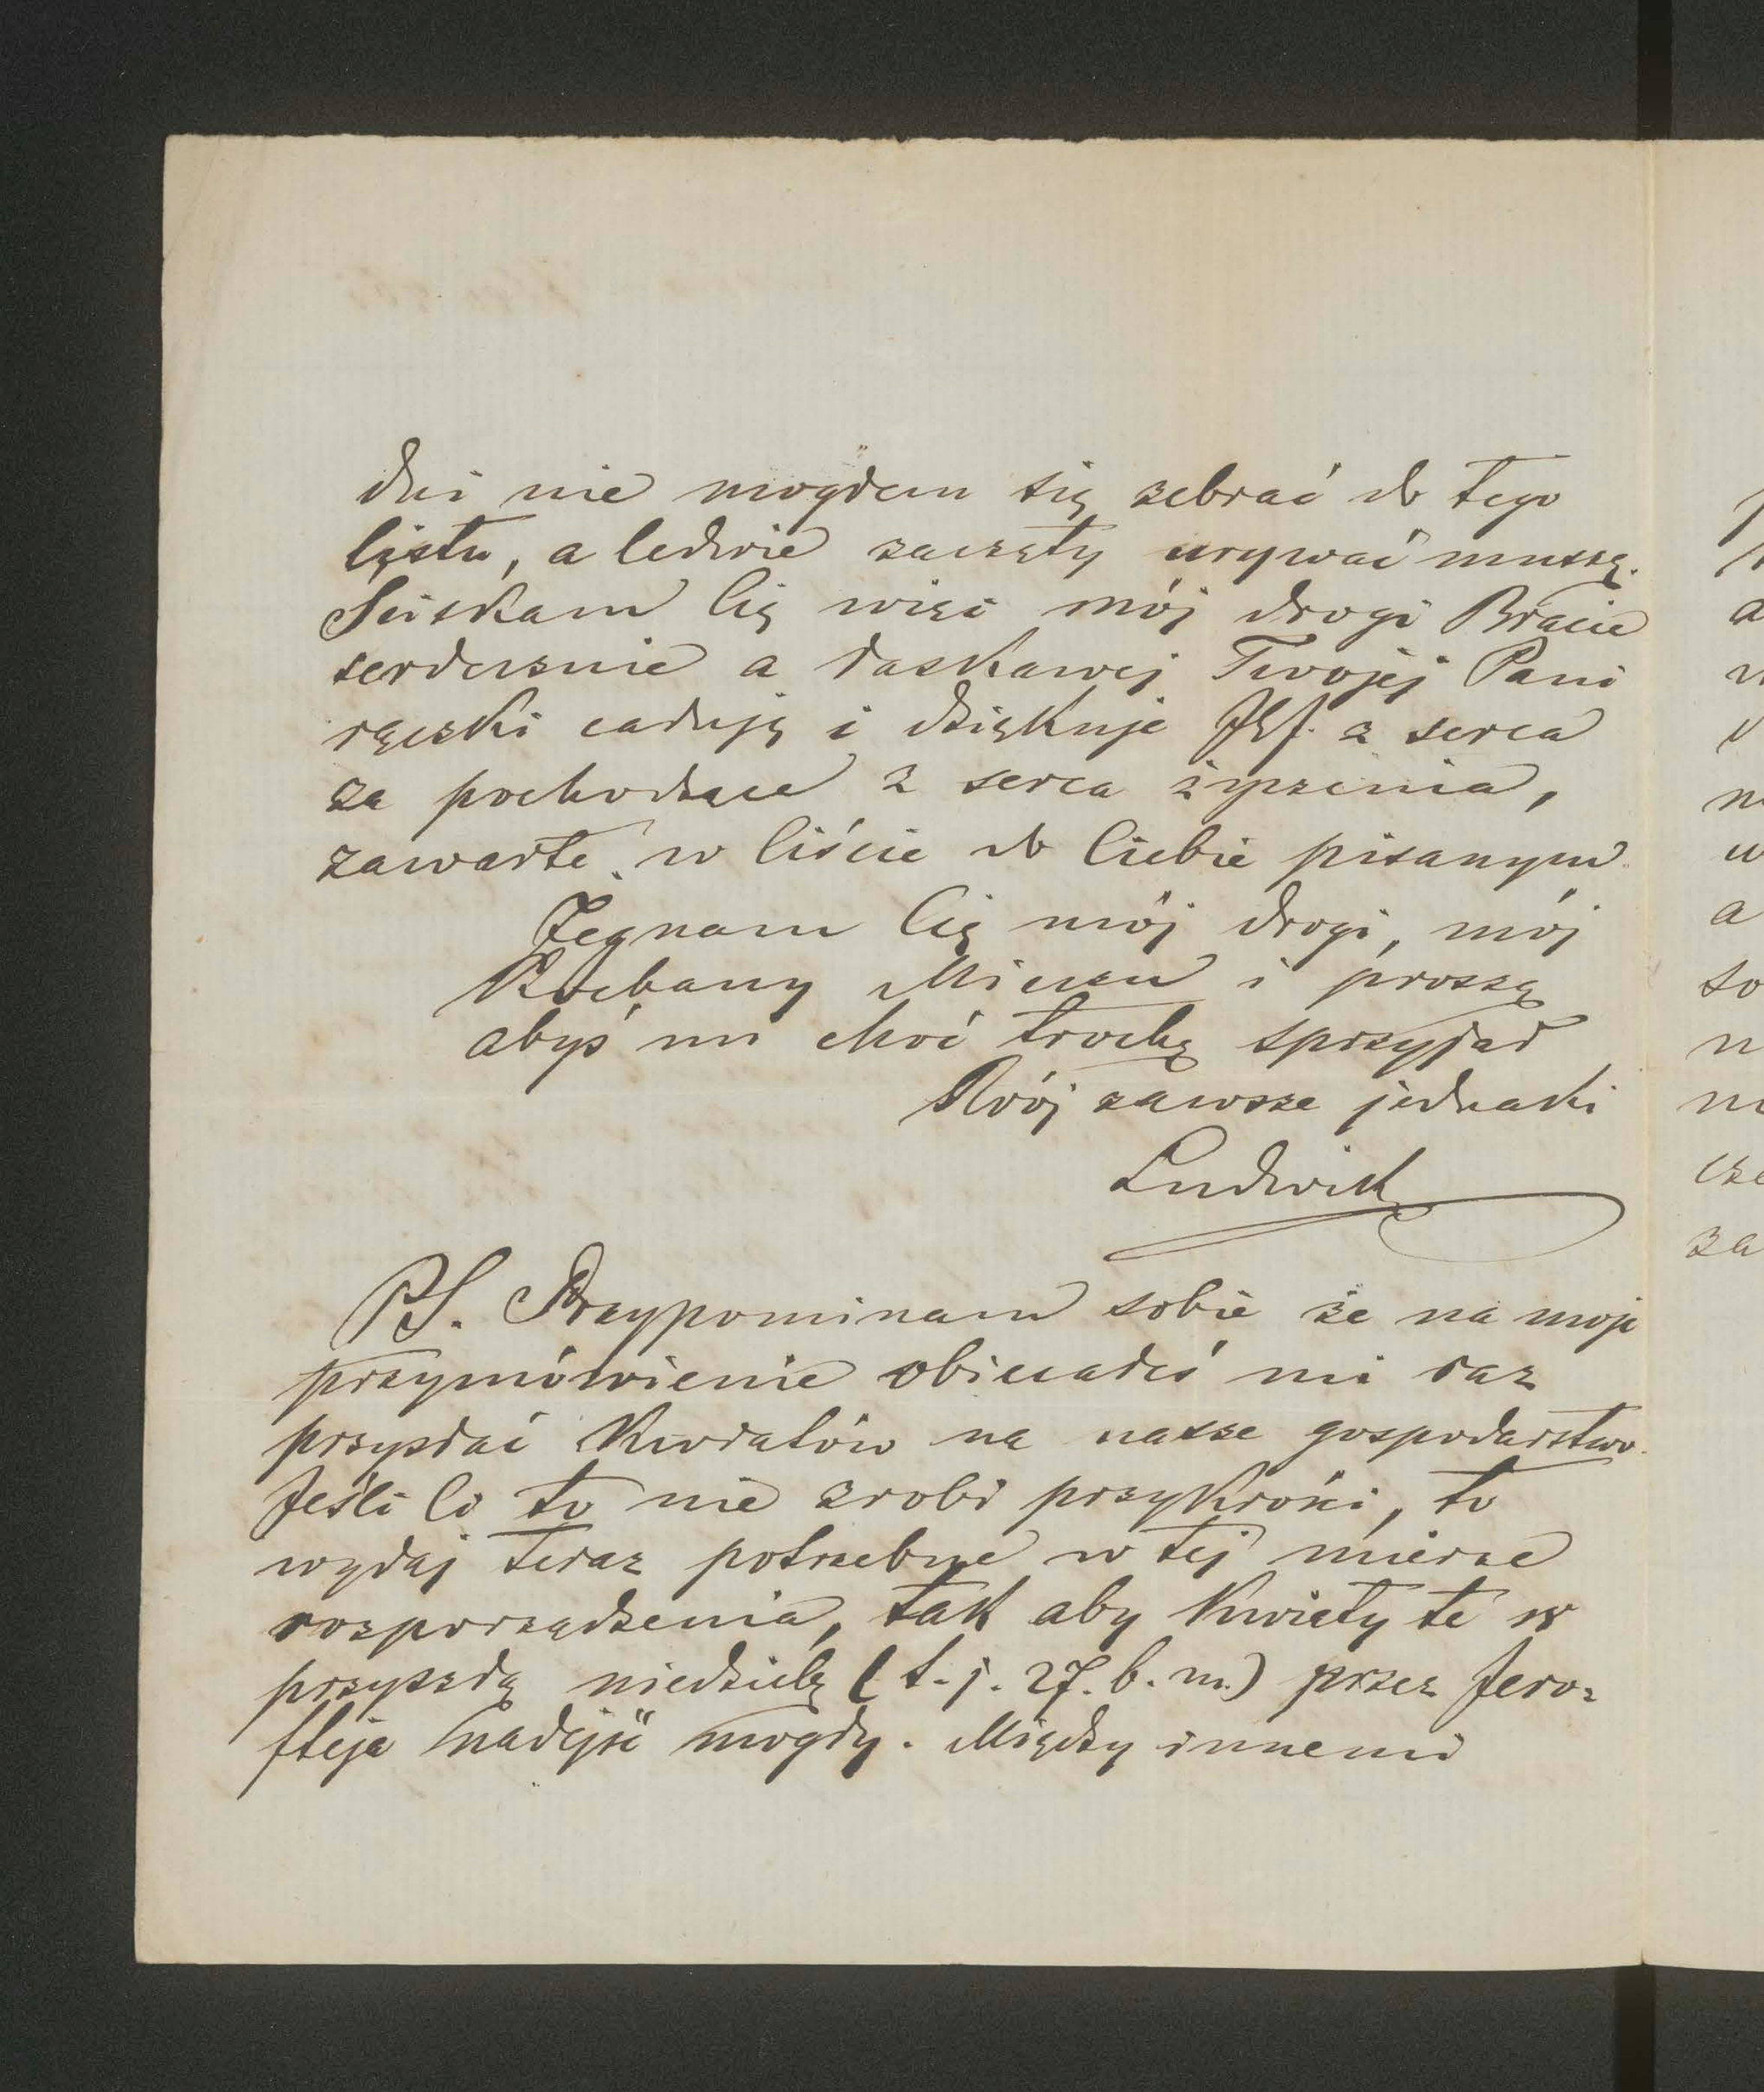 dni nie mogłem się zebrać do tego
listu, a ledwie zaczęty urywać muszę.
Ściskam Cię więc mój drogi Bracie
serdecznie a łaskawej Twojej Pani
rączki całuję i dziękuję Jej z serca
za pochodzące z serca życzenia,
zawarte w liście do Ciebie pisanym.
Żegnam Cię mój drogi, mój
Kochany Mieciu i proszę
abyś mi choć trochę sprzyjał
Twój zawsze jednaki
Ludwik
PS. Przypominam sobie że na moje
przymówienie obiecałeś mi raz
przysłać kwiatów na nasze gospodarstwo.
Jeśli Ci to nie zrobi przykrości, to
wydaj teraz potrzebne w tej mierze
rozporządzenia, tak aby kwiaty te w
przyszłą niedzielę (t. j. 27. b. m.) przez Jero-
fteja nadejść mogły. Między innemi